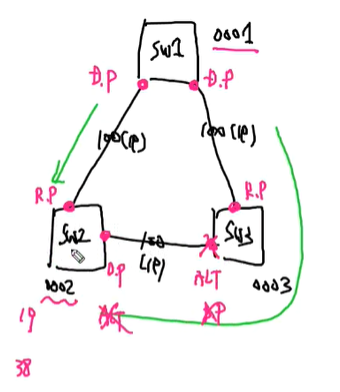 SW1
0001
D.P
D.P
100(19)
100(19)
R.P
R.P
SW2
SW3
100
(19)
D.P
ALT
0002
0003
19
38